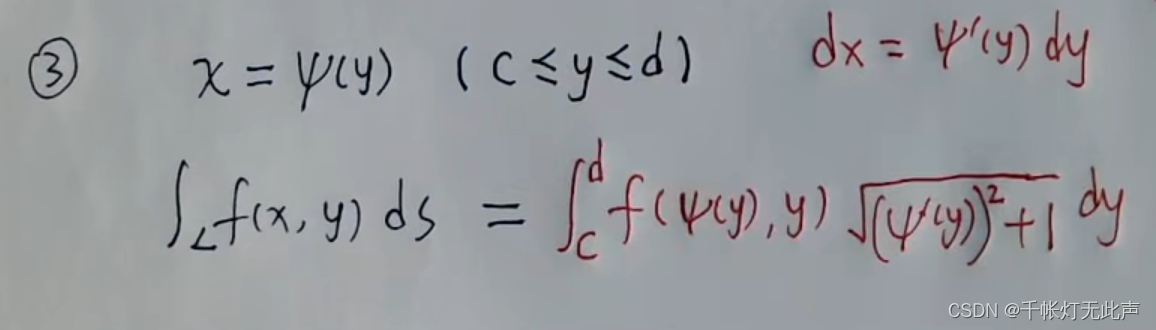 ③ x = ψ(y) (c ≤ y ≤ d) dx = ψ'(y) dy
∫_L f(x, y) ds = ∫_c^d f(ψ(y), y) √((ψ'(y))² + 1) dy
CSDN @千帐灯无此声